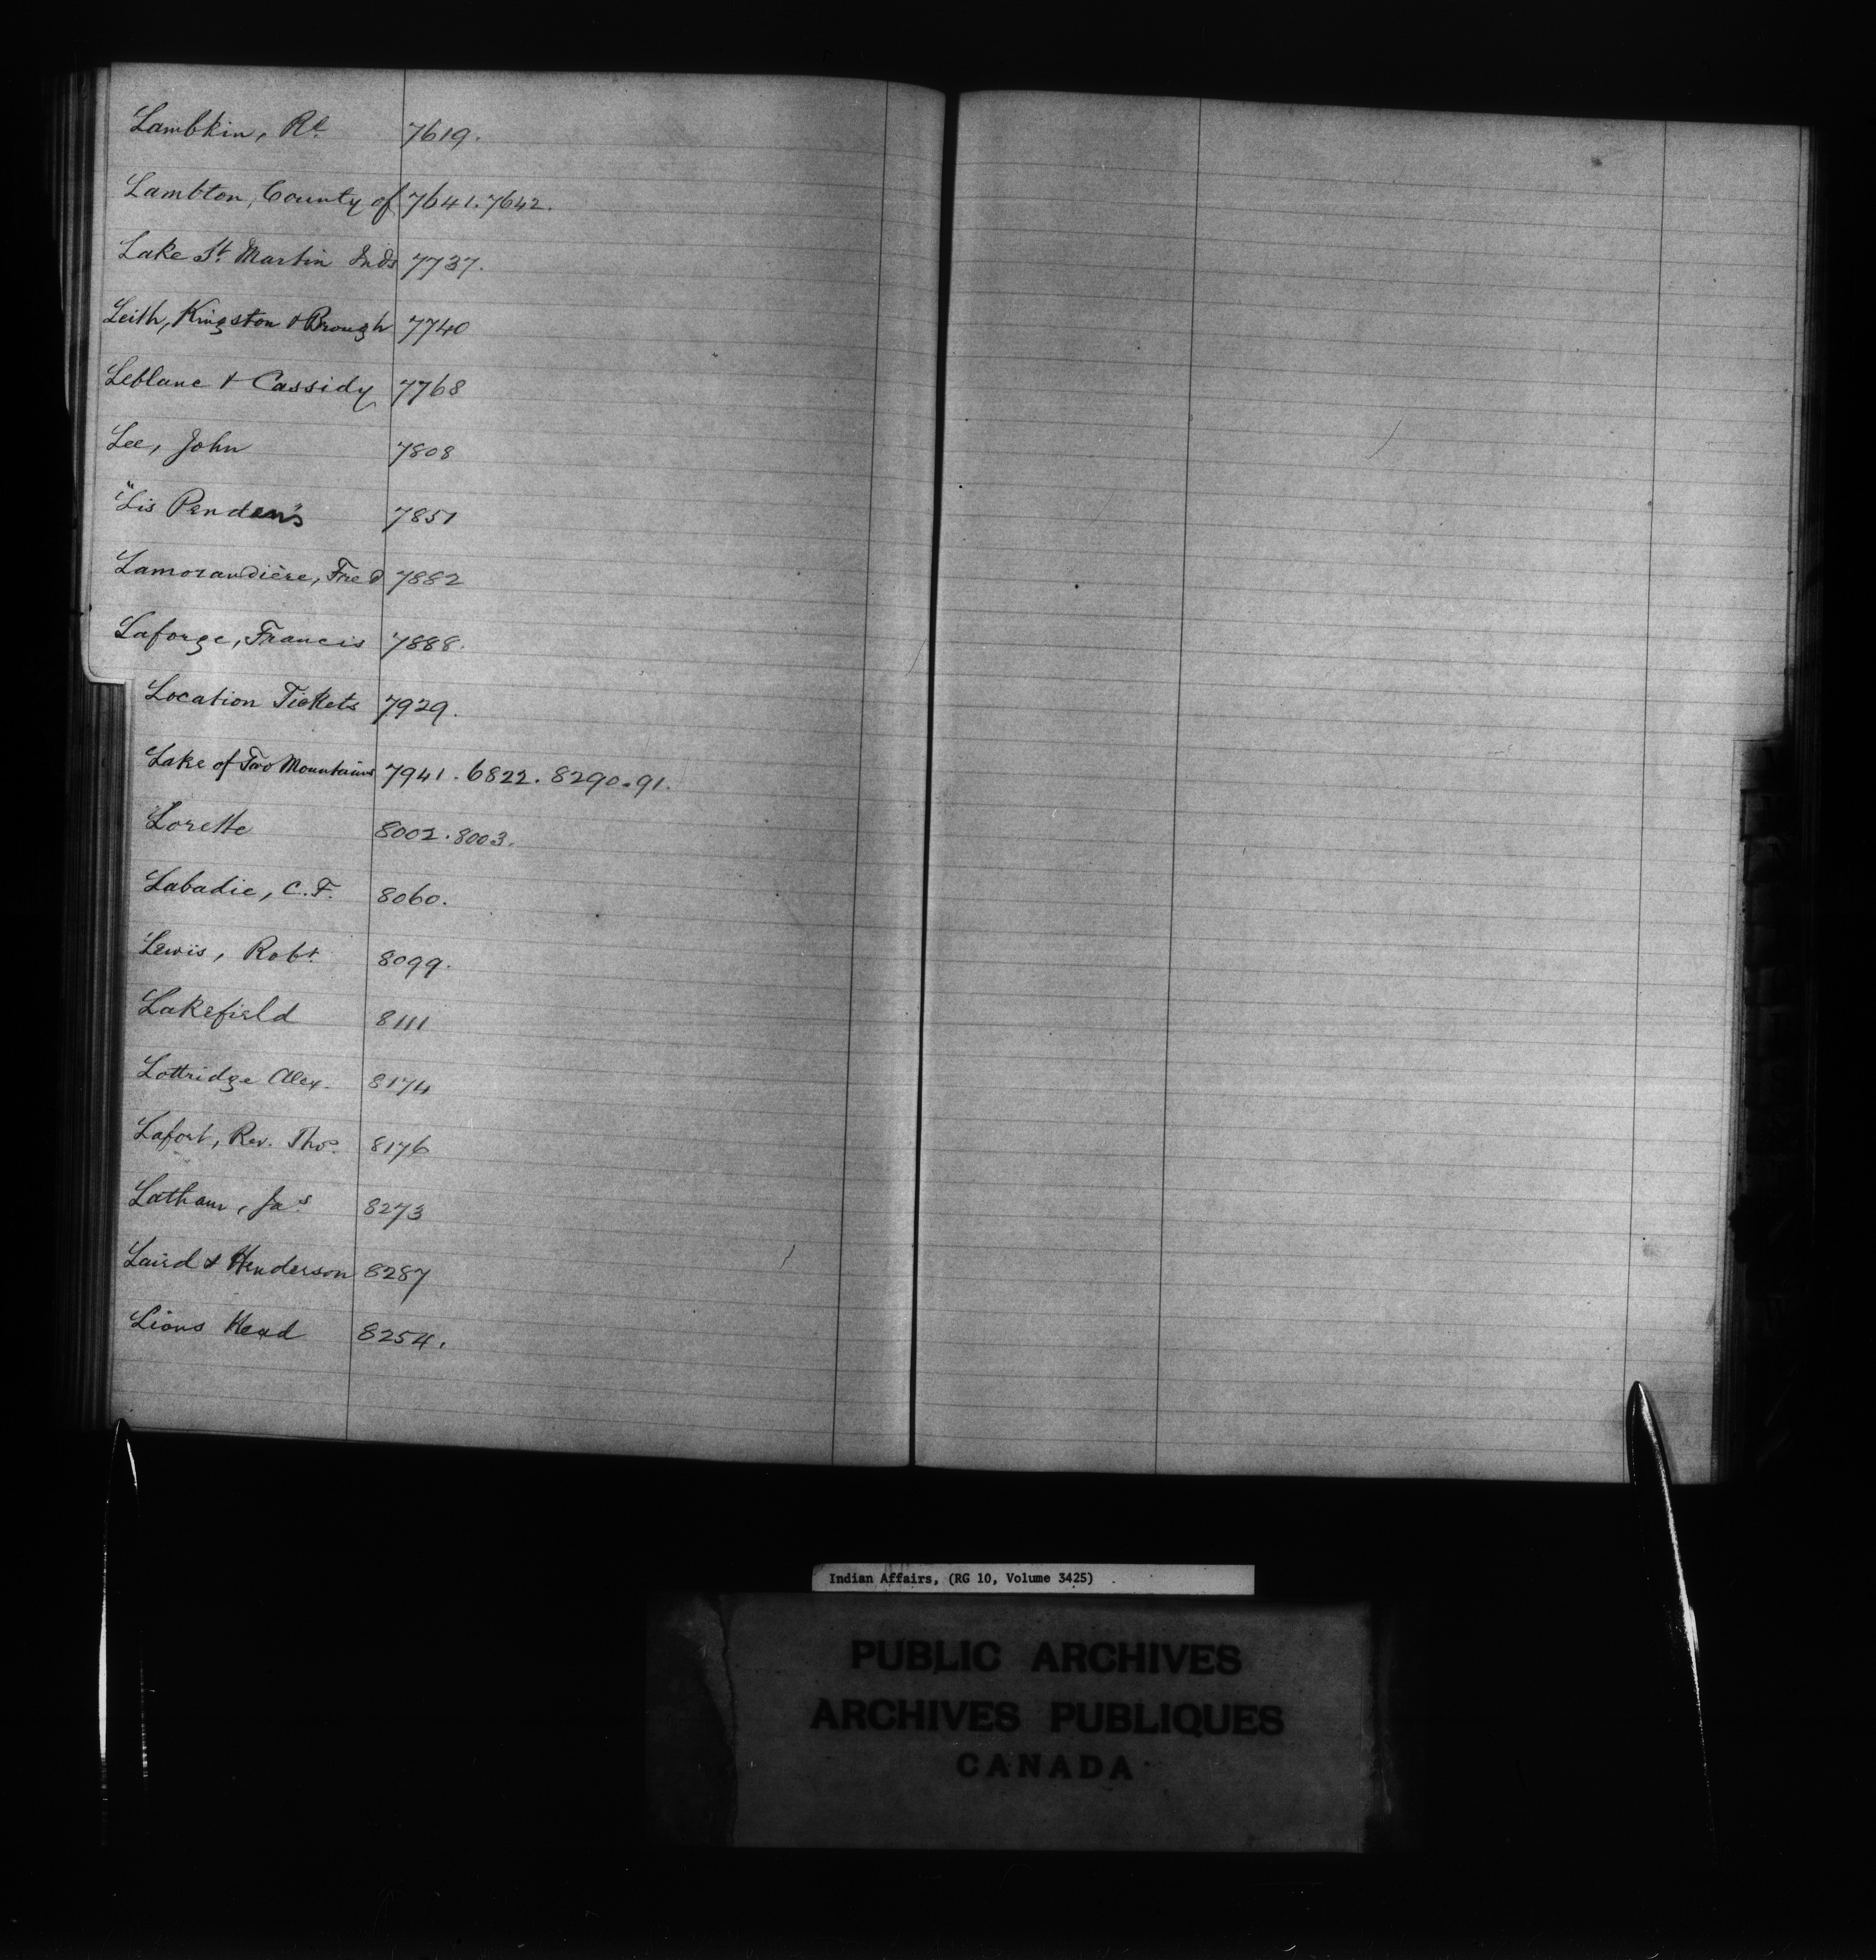 Lambkin, Rd. 7619.
Lambton, County of 7641. 7642.
Lake St. Martin Inds 7737.
Leith, Kingston & Brough 7740
Leblanc & Cassidy 7768
Lee, John 7808
"Lis Pendens" 7851
Lamorandière, Fred 7882
Laforge, Francis 7888.
Location Tickets 7929.
Lake of Two Mountains 7941. 6822. 8290-91.
Lorette 8002. 8003.
Labadie, C. F. 8060.
Lewis, Robt 8099.
Lakefield 8111
Lottridge Alex. 8174
Lafort, Rev. Thos. 8176
Latham, Jas. 8273
Laird & Henderson 8287
Lions Head 8254.
Indian Affairs, (RG 10, Volume 3425)
PUBLIC ARCHIVES
ARCHIVES PUBLIQUES
CANADA